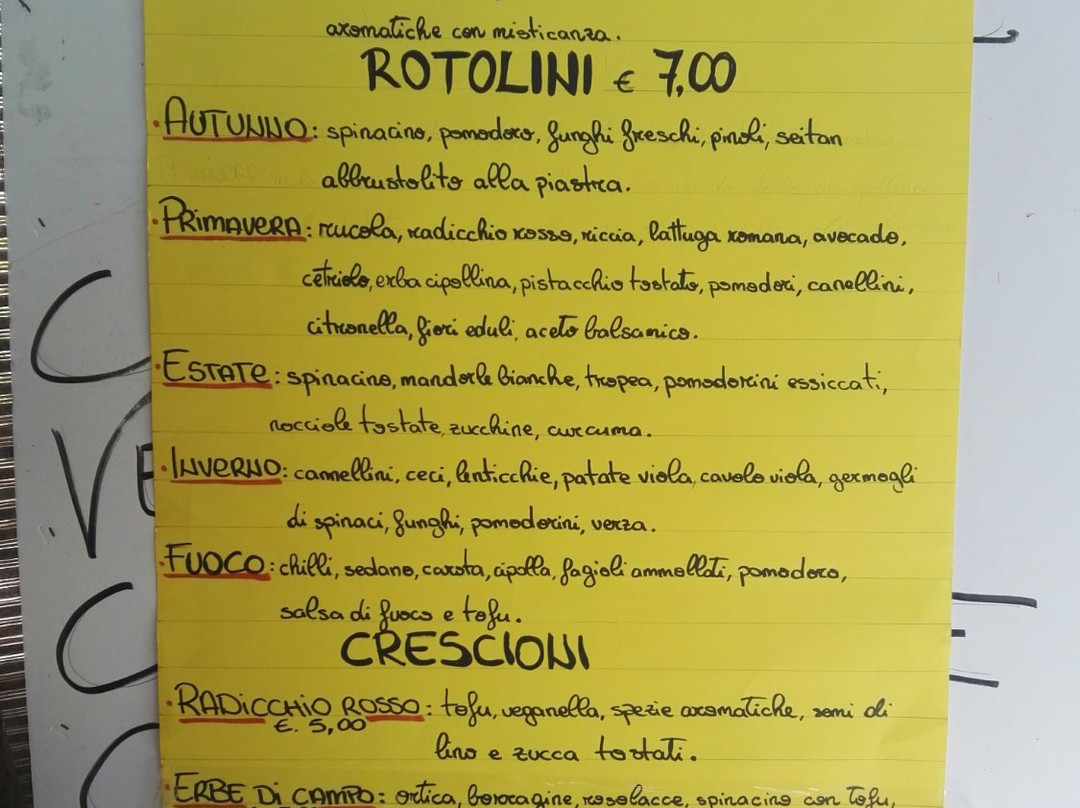 aromatiche con misticanza.
ROTOLINI € 7,00
• AUTUNNO: spinacino, pomodoro, funghi freschi, pinoli, seitan
abbrustolito alla piastra.
• PRIMAVERA: rucola, radicchio rosso, riccia, lattuga romana, avocado,
cetriolo, erba cipollina, pistacchio tostato, pomodori, canellini,
citronella, fiori eduli, aceto balsamico.
• ESTATE: spinacino, mandorle bianche, tropea, pomodorini essiccati,
nocciole tostate, zucchine, curcuma.
• INVERNO: cannellini, ceci, lenticchie, patate viola, cavolo viola, germogli
di spinaci, funghi, pomodorini, verza.
• FUOCO: chilli, sedano, carota, cipolla, fagioli ammollati, pomodoro,
salsa di fuoco e tofu.
CRESCIONI
• RADICCHIO ROSSO: tofu, veganella, spezie aromatiche, semi di
€. 5,00
lino e zucca tostati.
• ERBE DI CAMPO: ortica, borragine, rosolacce, spinacino con tofu,